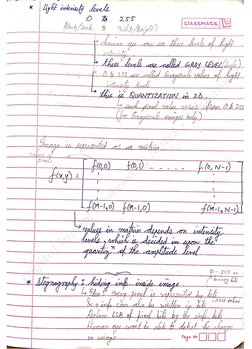 * Light intensity levels
0 to 255
CLASSMATE
(Dark/Black to White/Bright)
→ human eye can see these levels of light
intensity
↳ these levels are called GRAY LEVELS
0 to 255 are called Grayscale values of light
intensity levels
↓
this is QUANTIZATION in 2D
→ each pixel value varies from 0 to 255
(for Grayscale images only)
Image is represented as a matrix
f(0,0) f(0,1) ... f(0, N-1)
f(x,y) =
f(M-1,0) f(M-1,0) f(M-1, N-1)
↳ values in matrix depends on intensity
levels, which is decided upon the
quantizn of the amplitude level
0 - 255 in
binary bits
* Stegnography : hiding info inside image
↳ Since every pixel is represented by bits
& info can also be written in bits
Replace LSB of pixel bits by the info bits
Human eye won't be able to detect the change
in image